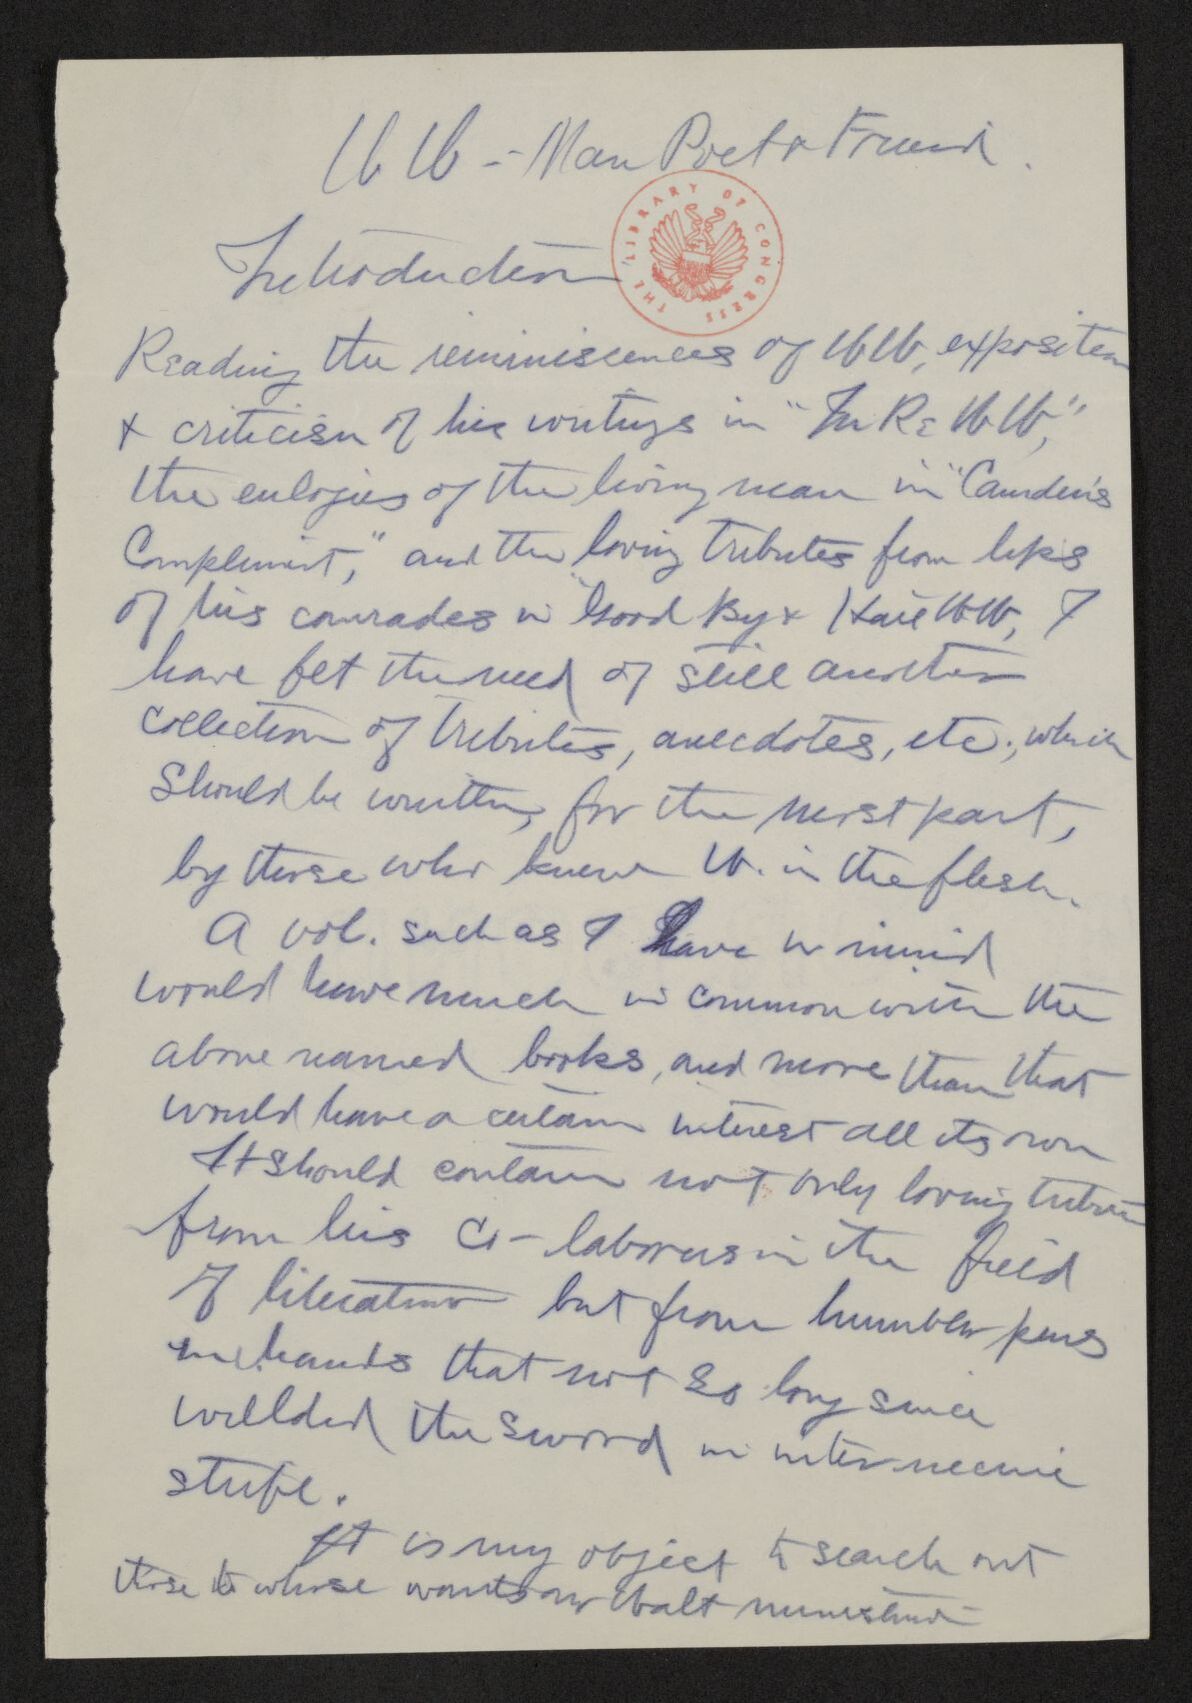 WW - Man Poet & Friend.
THE LIBRARY OF CONGRESS
Introduction
Reading the reminiscences of WW, exposition
& criticism of his writings in "In Re WW",
the eulogies of the living man in "Camden's
Compliment," and the loving tributes from lips
of his comrades in "Good Bye & Hail WW, I
have felt the need of still another
collection of tributes, anecdotes, etc., which
should be written, for the most part,
by those who knew W. in the flesh.
A vol. such as I have in mind
would have much in common with the
above named books, and more than that
would have a certain interest all its own
It should contain not only loving tributes
from his co-laborers in the field
of literature but from humbler pens
in hands that not so long since
wielded the sword in internecine
strife.
It is my object to search out
those to whose wants our Walt ministered